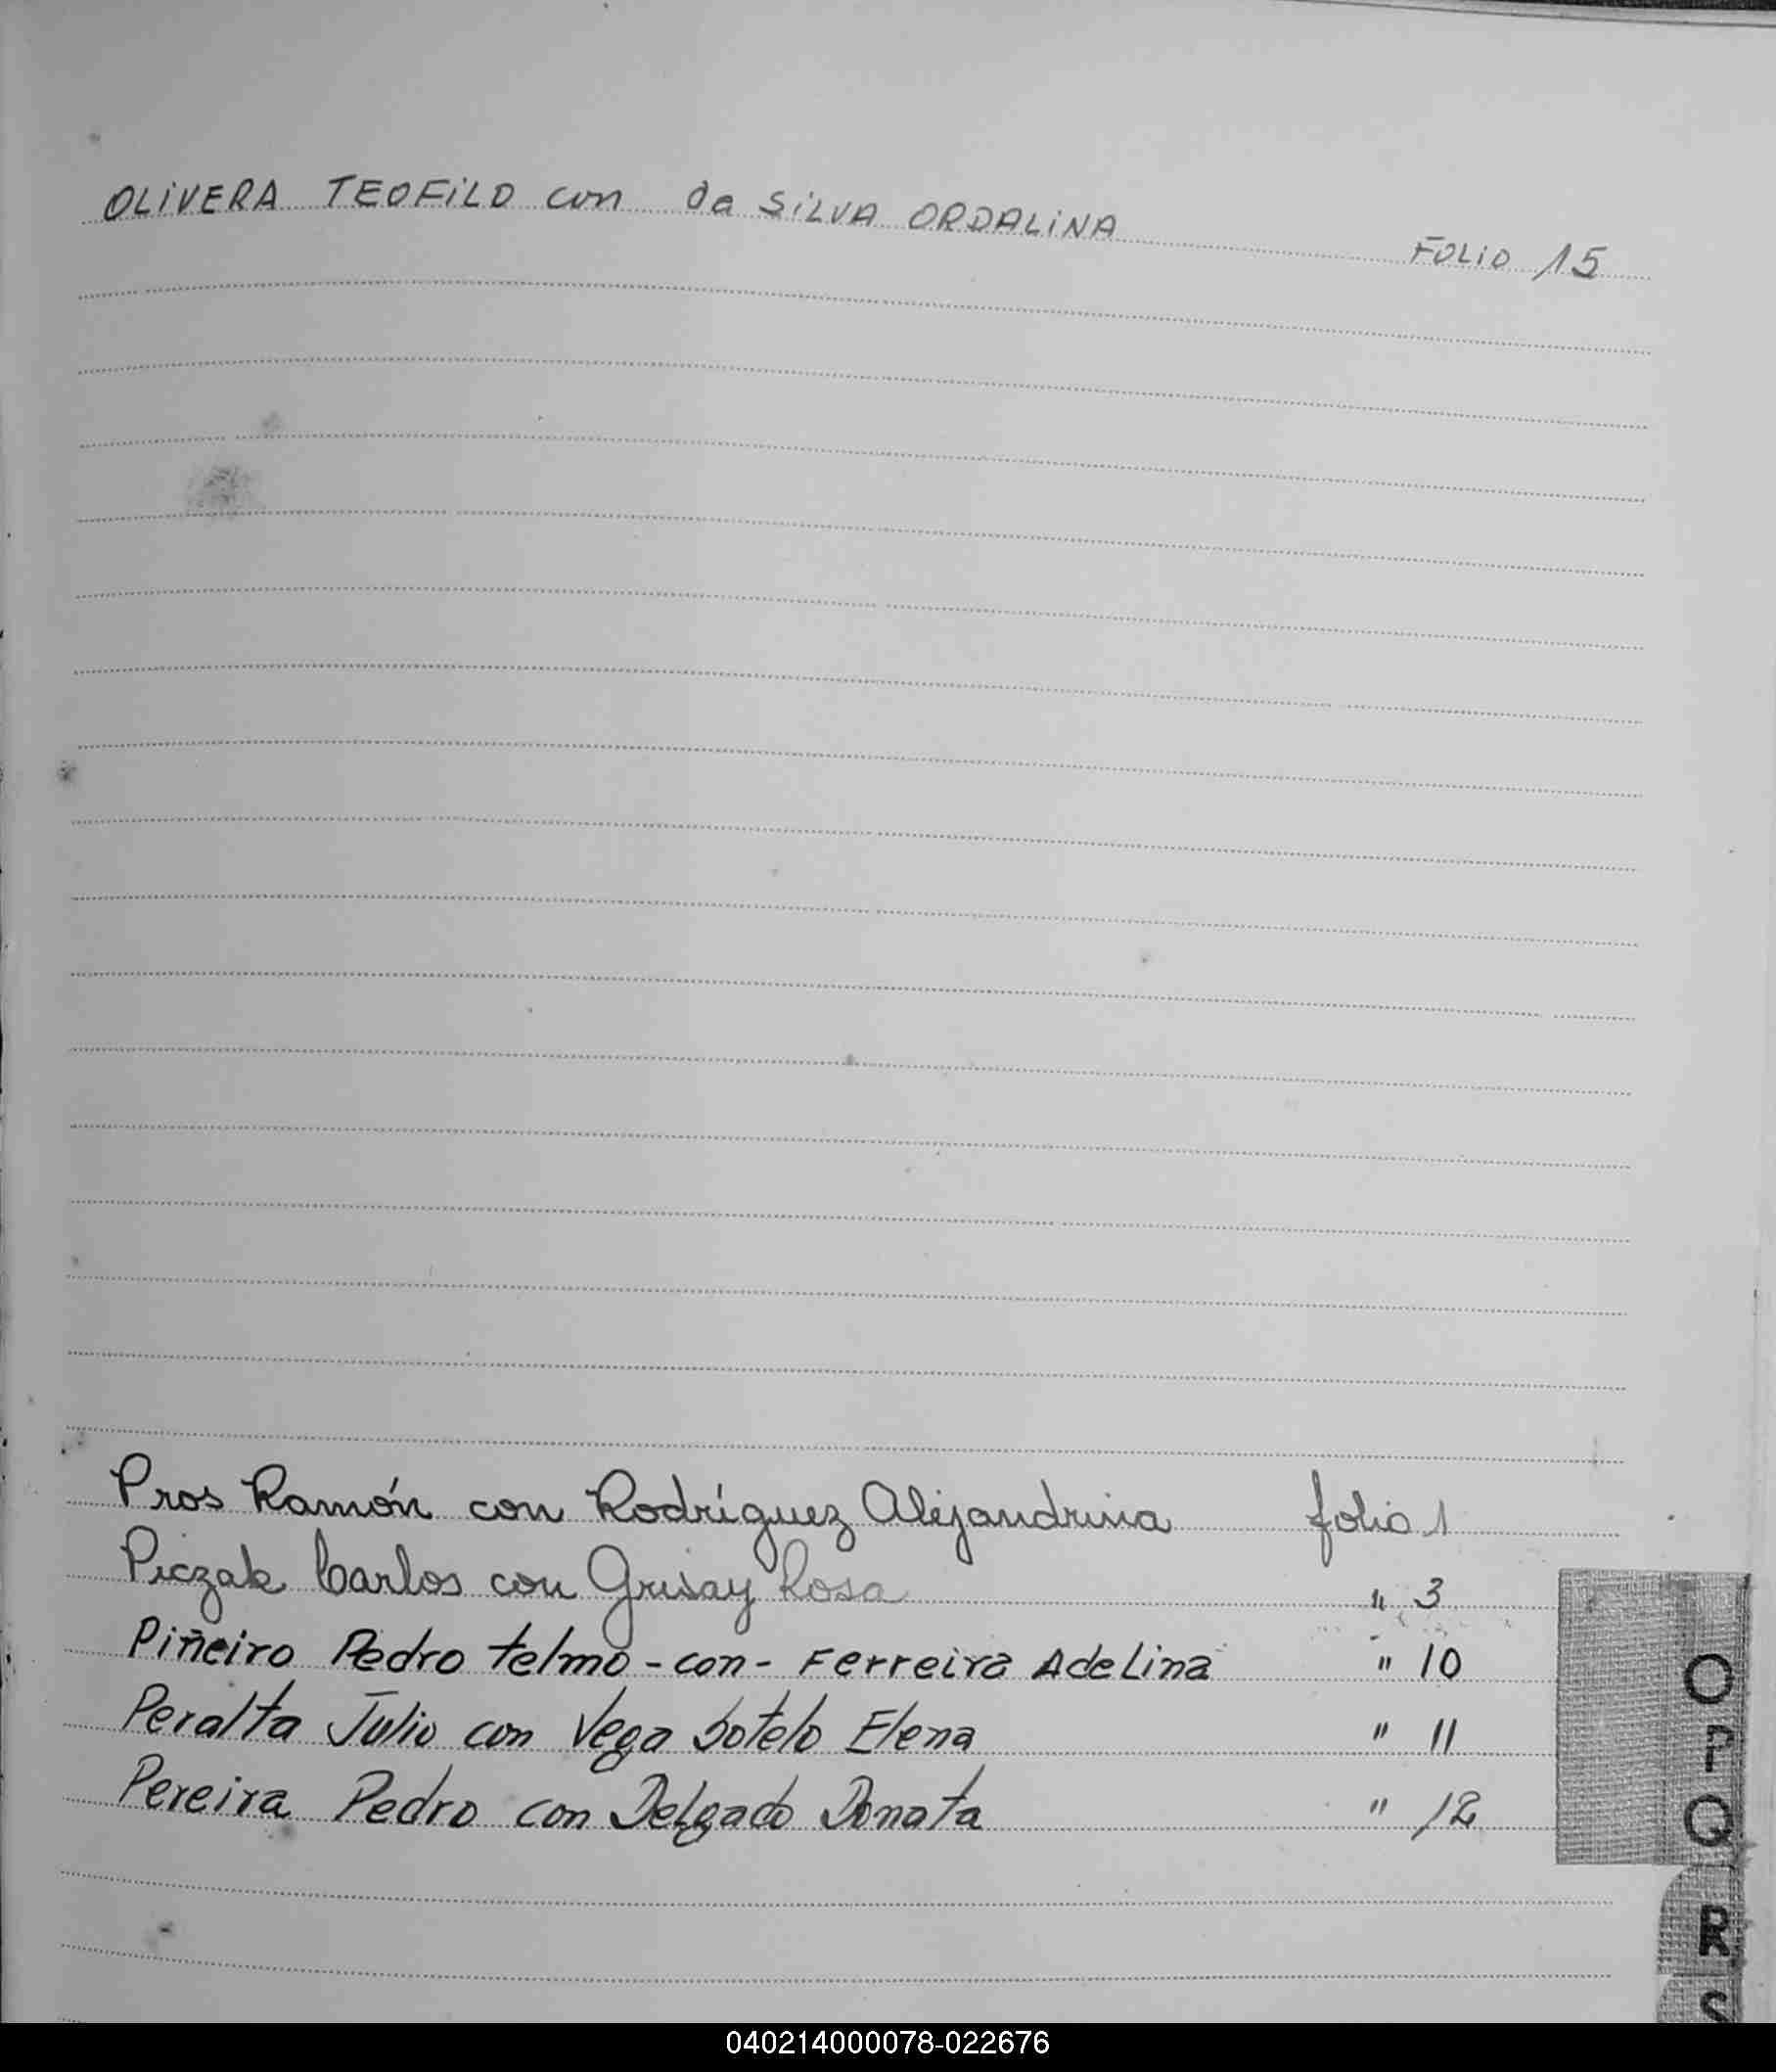 OLIVERA TEOFILO con da SILVA ORDALINA FOLIO 15
Pros Ramón con Rodríguez Alejandrina folio 1
Piczak Carlos con Grisay Rosa " 3
Piñeiro Pedro telmo - con - Ferreira Adelina " 10
Peralta Julio con Vega Sotelo Elena " 11
Pereira Pedro con Delgado Donata " 12
O
P
Q
R
S
040214000078-022676